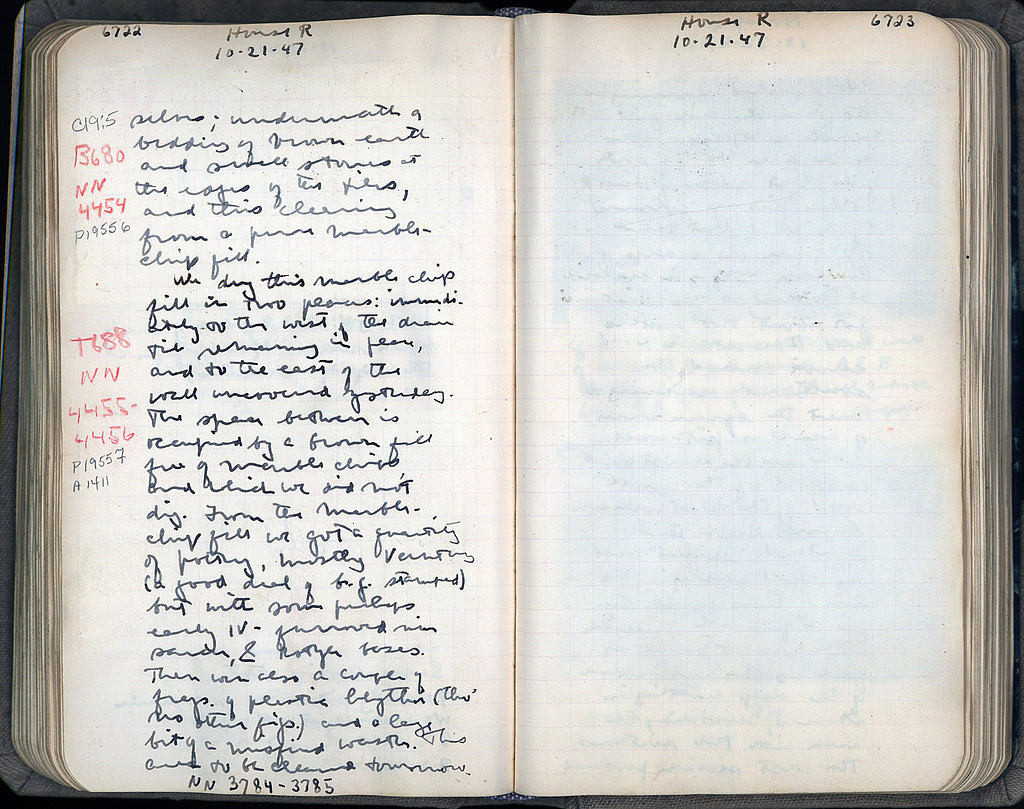 6722
House R
10-21-47
C19:5
B680
NN
4454
P19556
T688
NN
4455-
4456
P19557
A1411
underneath a
bedding of brown earth
and small stones at
the edges of the tiles,
and this cleaning
from a pure marble-
chip fill.
We dug this marble chip
fill in two places: immedi-
ately to the west of the drain
tile remaining in place,
and to the east of the
wall uncovered yesterday.
The space between is
occupied by a brown fill
free of marble chips,
and which we did not
dig. From the marble-
chip fill we got a quantity
of pottery, mostly
(a good deal of b.g. stamped)
but with some perhaps
early IV - furrowed rim
&  bases.
There were also a couple of
frags. of plastic lekythoi (tho'
no other figs.) and a large
bit of a misfired waster. This
area to be cleaned tomorrow.
NN 3784-3785
House R
10-21-47
6723